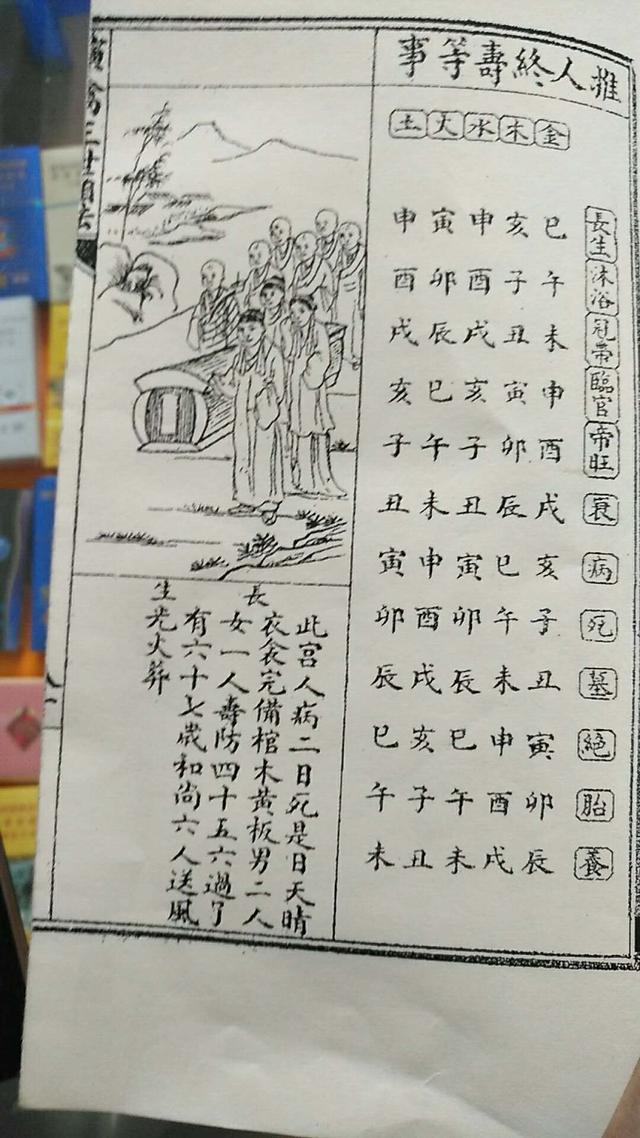 推人終壽等事
金木水火土
長生 沐浴 冠帶 臨官 帝旺 衰 病 死 墓 絕 胎 養
巳午未申酉戌亥子丑寅卯辰
亥子丑寅卯辰巳午未申酉戌
申酉戌亥子丑寅卯辰巳午未
寅卯辰巳午未申酉戌亥子丑
申酉戌亥子丑寅卯辰巳午未
長生
此宮人病二日死是日天晴
衣衾完備棺木黃板男二人
女一人壽防四十五六過了
有六十七歲和尚六人送風
光火葬
禽三世相法